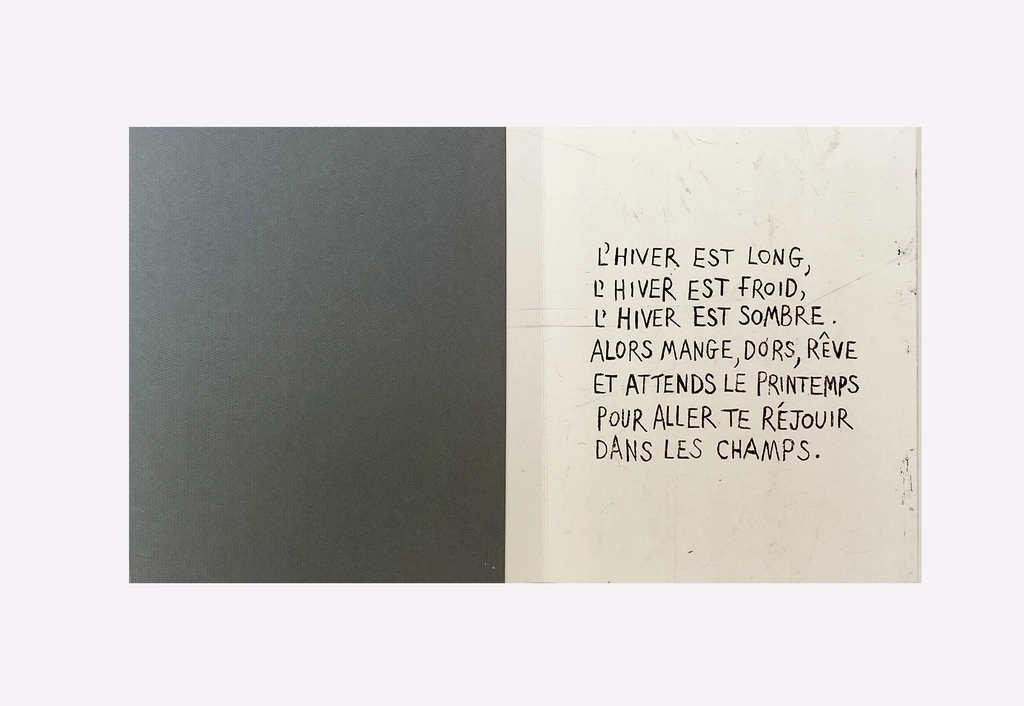 L'HIVER EST LONG,
L'HIVER EST FROID,
L'HIVER EST SOMBRE.
ALORS MANGE, DORS, RÊVE
ET ATTENDS LE PRINTEMPS
POUR ALLER TE RÉJOUIR
DANS LES CHAMPS.